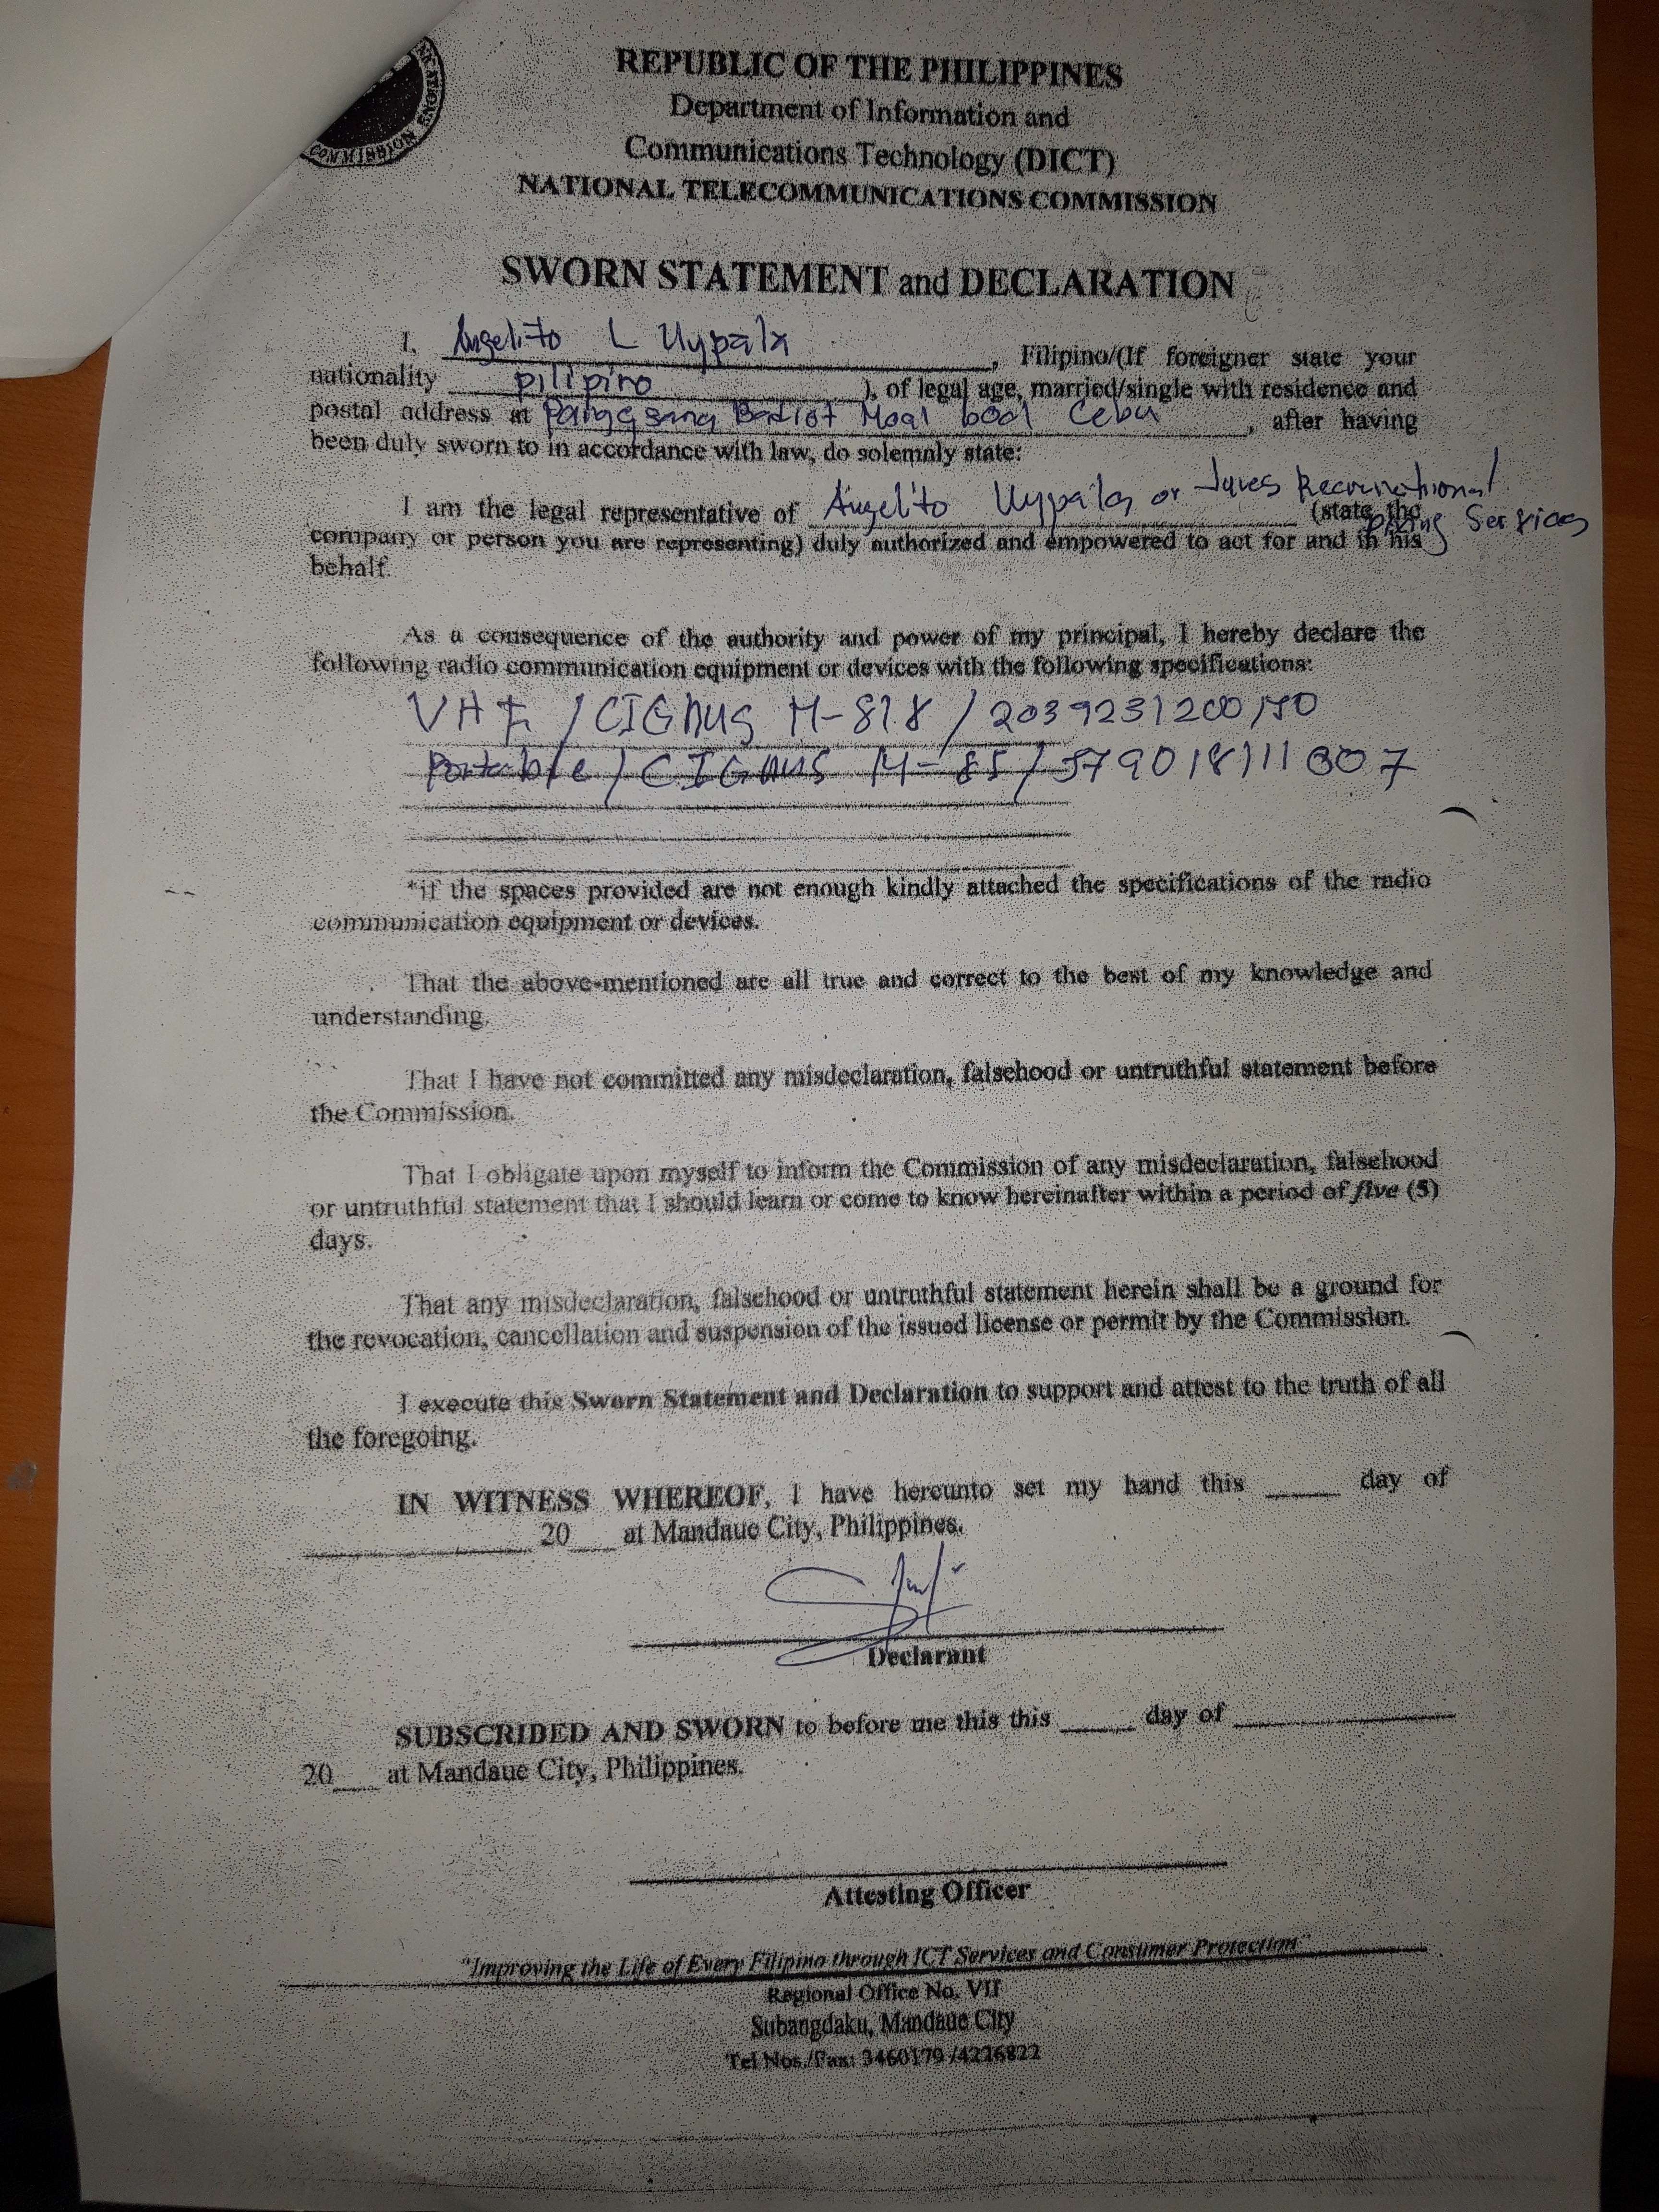 COMMISSION
REPUBLIC OF THE PHILIPPINES
Department of Information and
Communications Technology (DICT)
NATIONAL TELECOMMUNICATIONS COMMISSION
SWORN STATEMENT and DECLARATION
I, Angelito L Uypala, Filipino/(If foreigner state your
nationality pilipino), of legal age, married/single with residence and
postal address at Panagsama Basdiot Moal boal Cebu, after having
been duly sworn to in accordance with law, do solemnly state:
I am the legal representative of Angelito Uypala or Recreational (state the
Diving Services
company or person you are representing) duly authorized and empowered to act for and in his
behalf.
As a consequence of the authority and power of my principal, I hereby declare the
following radio communication equipment or devices with the following specifications:
VHF / CIGNUS M-818 /
Portable / CIGNUS M-85 /
*if the spaces provided are not enough kindly attached the specifications of the radio
communication equipment or devices.
That the above-mentioned are all true and correct to the best of my knowledge and
understanding.
That I have not committed any misdeclaration, falsehood or untruthful statement before
the Commission.
That I obligate upon myself to inform the Commission of any misdeclaration, falsehood
or untruthful statement that I should learn or come to know hereinafter within a period of five (5)
days.
That any misdeclaration, falsehood or untruthful statement herein shall be a ground for
the revocation, cancellation and suspension of the issued license or permit by the Commission.
I execute this Sworn Statement and Declaration to support and attest to the truth of all
the foregoing.
IN WITNESS WHEREOF, I have hereunto set my hand this ____ day of
____ 20___ at Mandaue City, Philippines.
Declarant
SUBSCRIBED AND SWORN to before me this this ____ day of ____
20___ at Mandaue City, Philippines.
Attesting Officer
"Improving the Life of Every Filipino through ICT Services and Consumer Protection"
Regional Office No. VII
Subangdaku, Mandaue City
Tel Nos./Fax: 3460179 /4226822